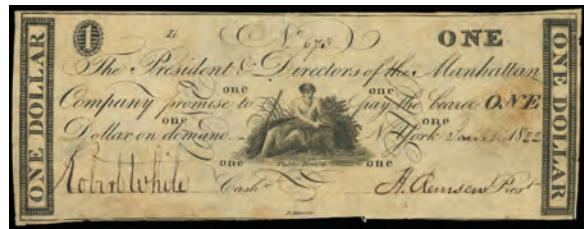 ONE DOLLAR
1 No 675 ONE
The President & Directors of the Manhattan
one one
Company promise to pay the bearer ONE
one one
Dollar on demand. N-York 1822
one one
Robert White Cashr. H. Remsen Prest.
ONE DOLLAR